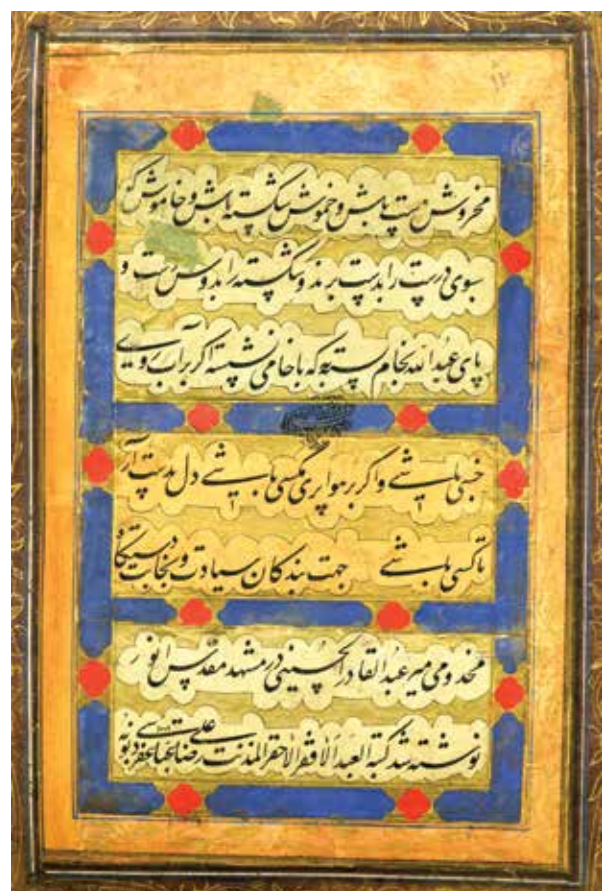 ۱۲
مخروش مست باش و خموش شکسته باش و خاموش که
سبوی درست را بدست برند و شکسته را بدوش مست و
پای عبدالله بخام بسته که با خامی نشسته اگر بر آب روی
خسی باشی و اگر بر هوا پری مگسی باشی دل بدست آر
تا کسی باشی جهت بندگان سیادت و نجابت دستگاه
مخدومی میر عبدالقادر الحسینی در مشهد مقدس انور
نوشته شد کتبه العبد الافقر الاحقر المذنب علی رضا عباسی غفر ذنوبه